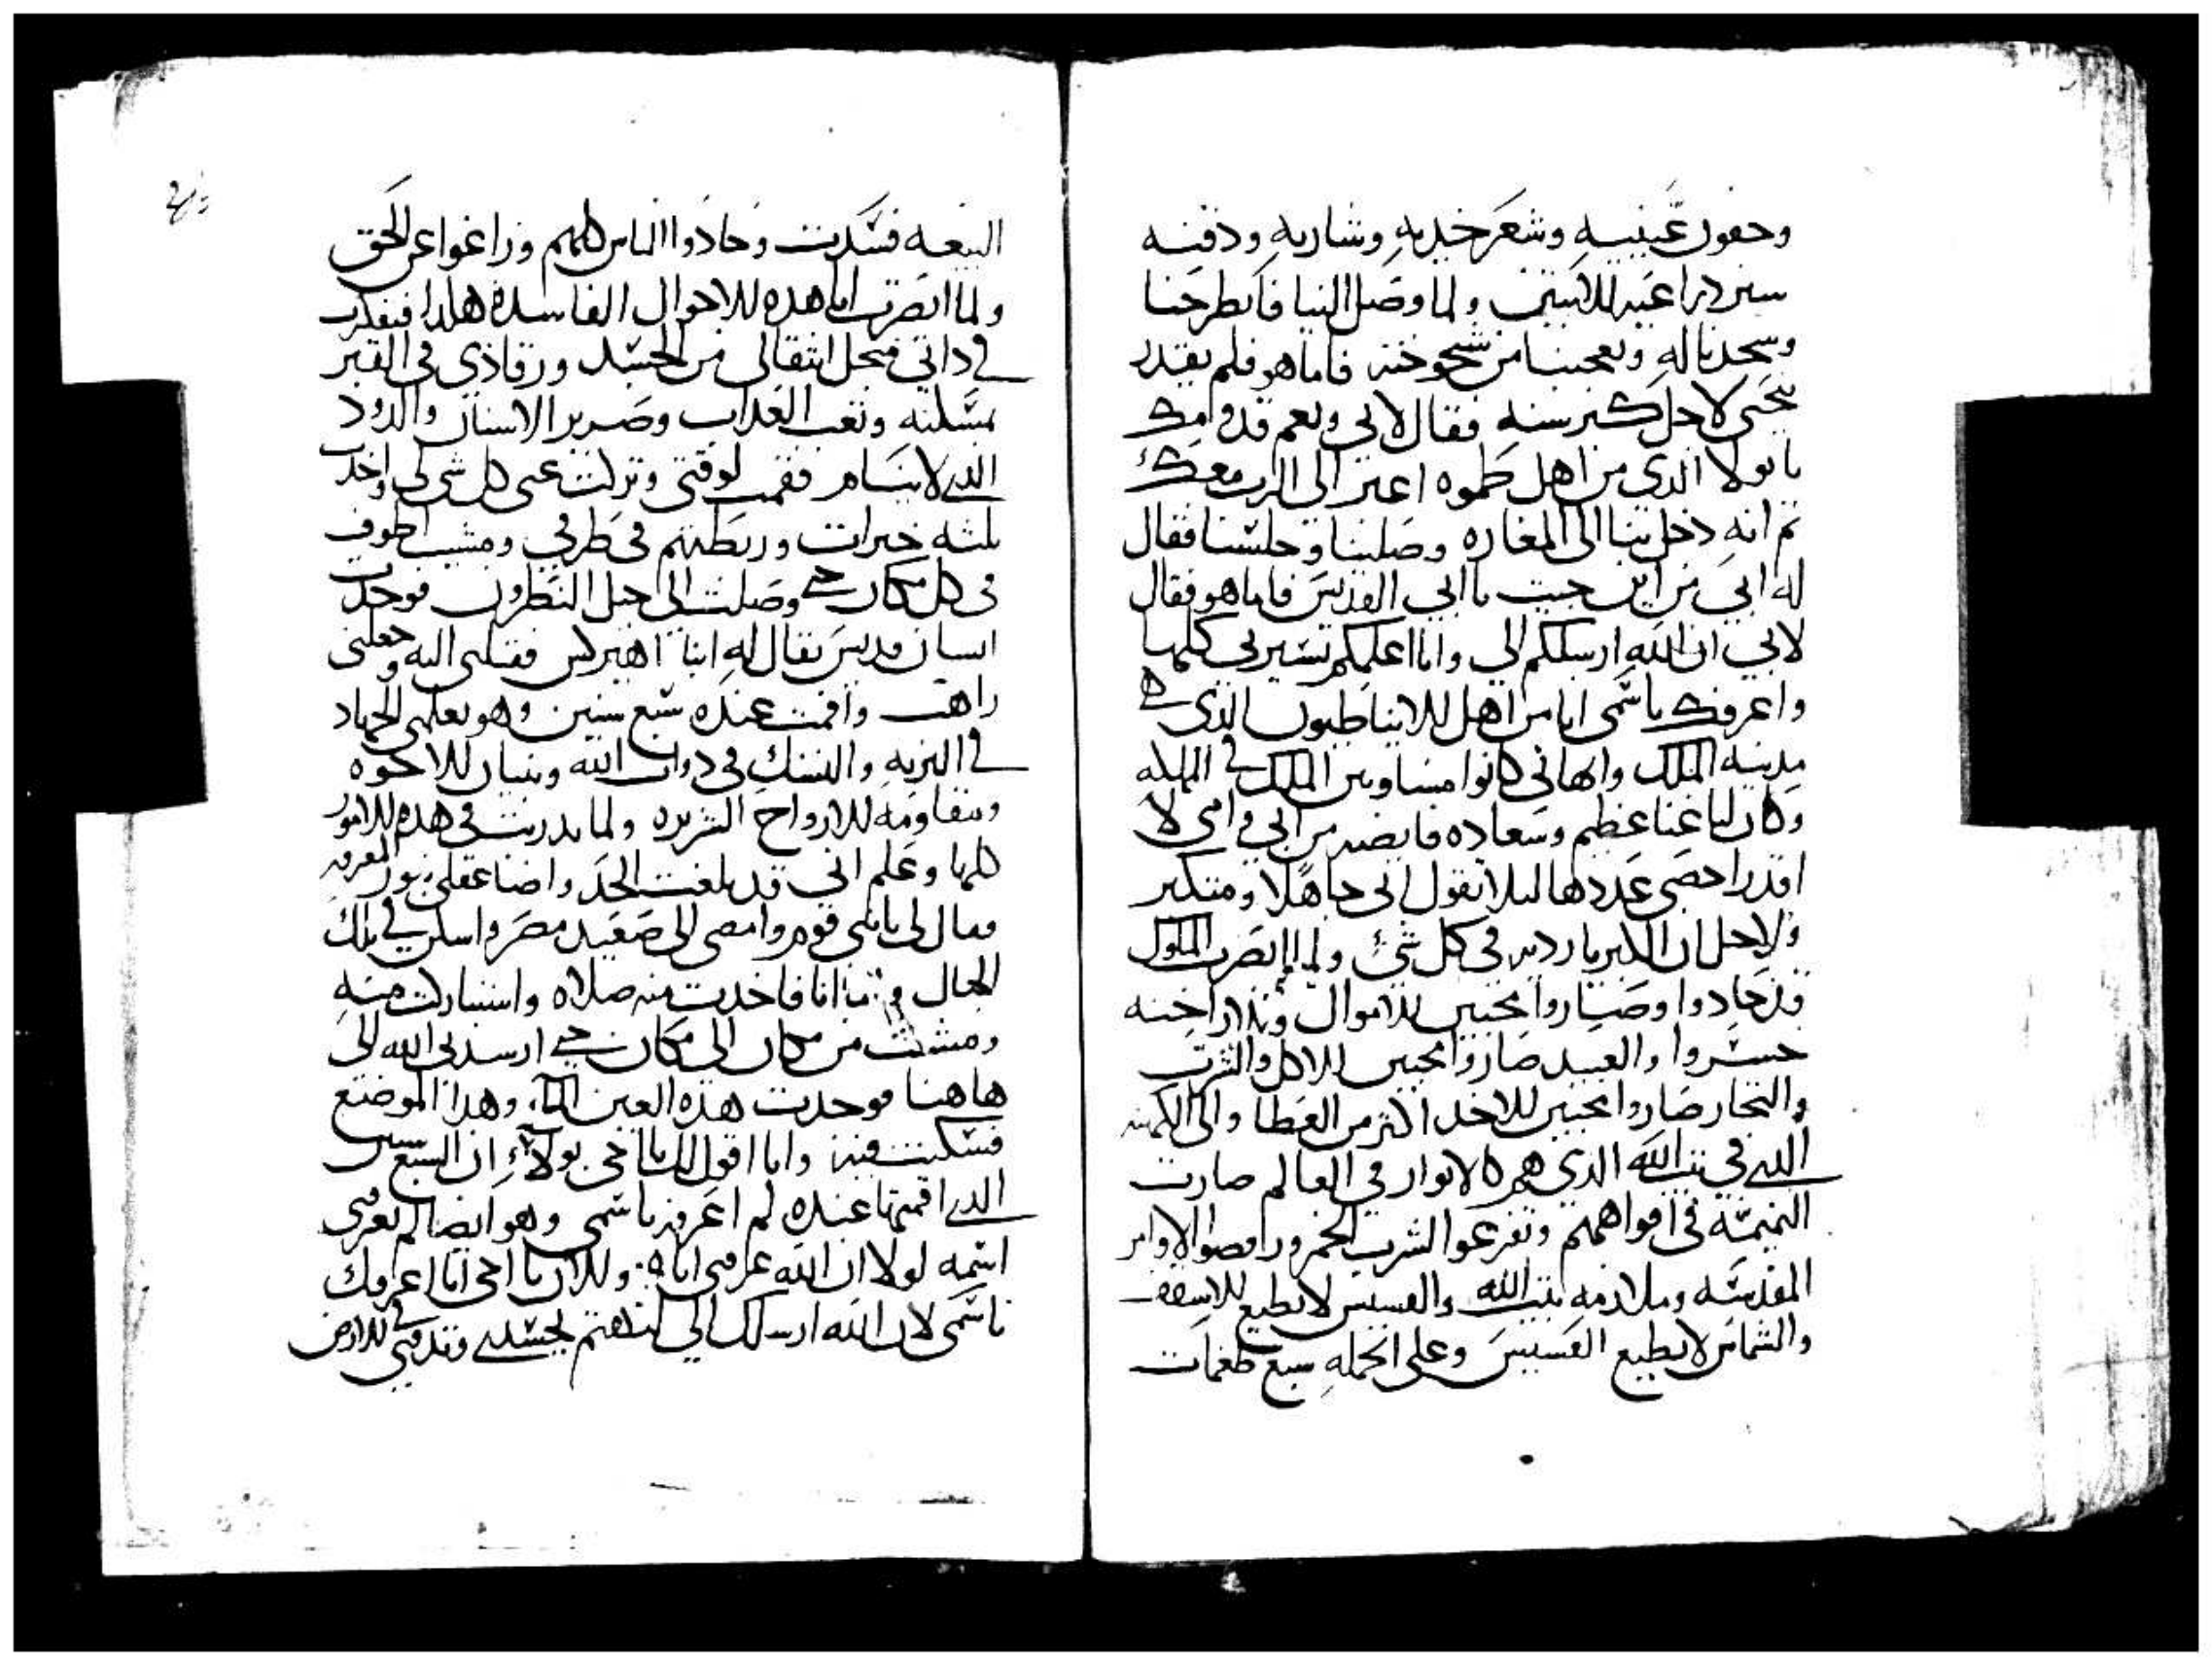 وجفون عينيه وشعر خديه وشاربه ودقنه
ولما وصل الينا فانطرحنا
وسجدنا له وتعجبنا من شيخوخته فاما هو فلم يقدر
ينحني لاجل كبر سنه فقال لابي ونعم قدوامك
يا بولا الذي من اهل طموه اعبر الى الرب معك
ثم انه دخل بنا الى المغاره وصلينا وجلسنا فقال
له ابي من اين جيت يا ابي القديس فاما هو فقال
لابي ان الله ارسلكم الي وانا اعلمكم بسيرتي كلها
واعرفك باسمي انا من اهل الذي في
مدينه الملك واهاني كانوا الملك في المملكه
وكان لنا غنا عظيم وسعاده من ابي وامي لا
اقدر احصي عددها ليلا تقول اني جاهلا ومتكبر
ولاجل ان الكبريا في كل شي ولما ابصرت الملوك
قد حادوا وصاروا محبين للاموال
خسروا والعبيد صاروا محبين للاكل والشرب
والتجار صاروا محبين للاخد اكتر من العطا والى الكهنه
الدي في بيت الله الذي هم الانوار في العالم صارت
النميمه في افواههم وتفرغوا لشرب الخمر ورفضوا الاوامر
المقدسه وملازمه بيت الله والقسيس لا يطيع للاسقف
والشماس لا يطيع القسيس وعلى الجمله سبع طغمات
البيعه فسدت وحادوا الناس كلهم وزاغوا عن الحق
ولما ابصرت انا هده الاحوال الفاسده هكدا ففكرت
في داتي فيحل انتقالي من الجسد ورقادي في القبر
وتعب العداب وصرير الاسنان والدود
الدي لا ينام فقمت لوقتي وتركت عني كل شي لي واخدت
تلته خبزات وربطتهم في طرفي ومشيت اطوف
في كل مكان حتى وصلت الى جبل النطرون فوجدت
انسان قديس يقال له انبا فقبلني اليه وجعلني
راهب واقمت عنده سبع سنين وهو يعلمني الجهاد
في البريه والنسك في دوات الله الاخوه
ومقاومه الارواح الشريره ولما تدربت في هده الامور
كلها وعلم اني قد بلغت الحد واضا عقلي بنور المعرفه
فقال لي يا بني قوم وامضي الى صعيد مصر واسكن في تلك
الجبال انا فاخدت منه صلاه واستباركت منه
ومشيت من مكان الى مكان حتى ارسدني الله الى
هاهنا فوجدت هذه العين الماء وهدا الموضع
فسكنت فيه وانا اقول لك يا اخي بولا ان السبع سنين
الدي اقمتها عنده لم اعرفه باسمي وهو ايضا لم يعرفني
اسمه لولا ان الله عرفني اياه والان يا اخي انا اعرفك
باسمي لان الله ارسلك الي لتهتم بجسدي وتدفني في الارض